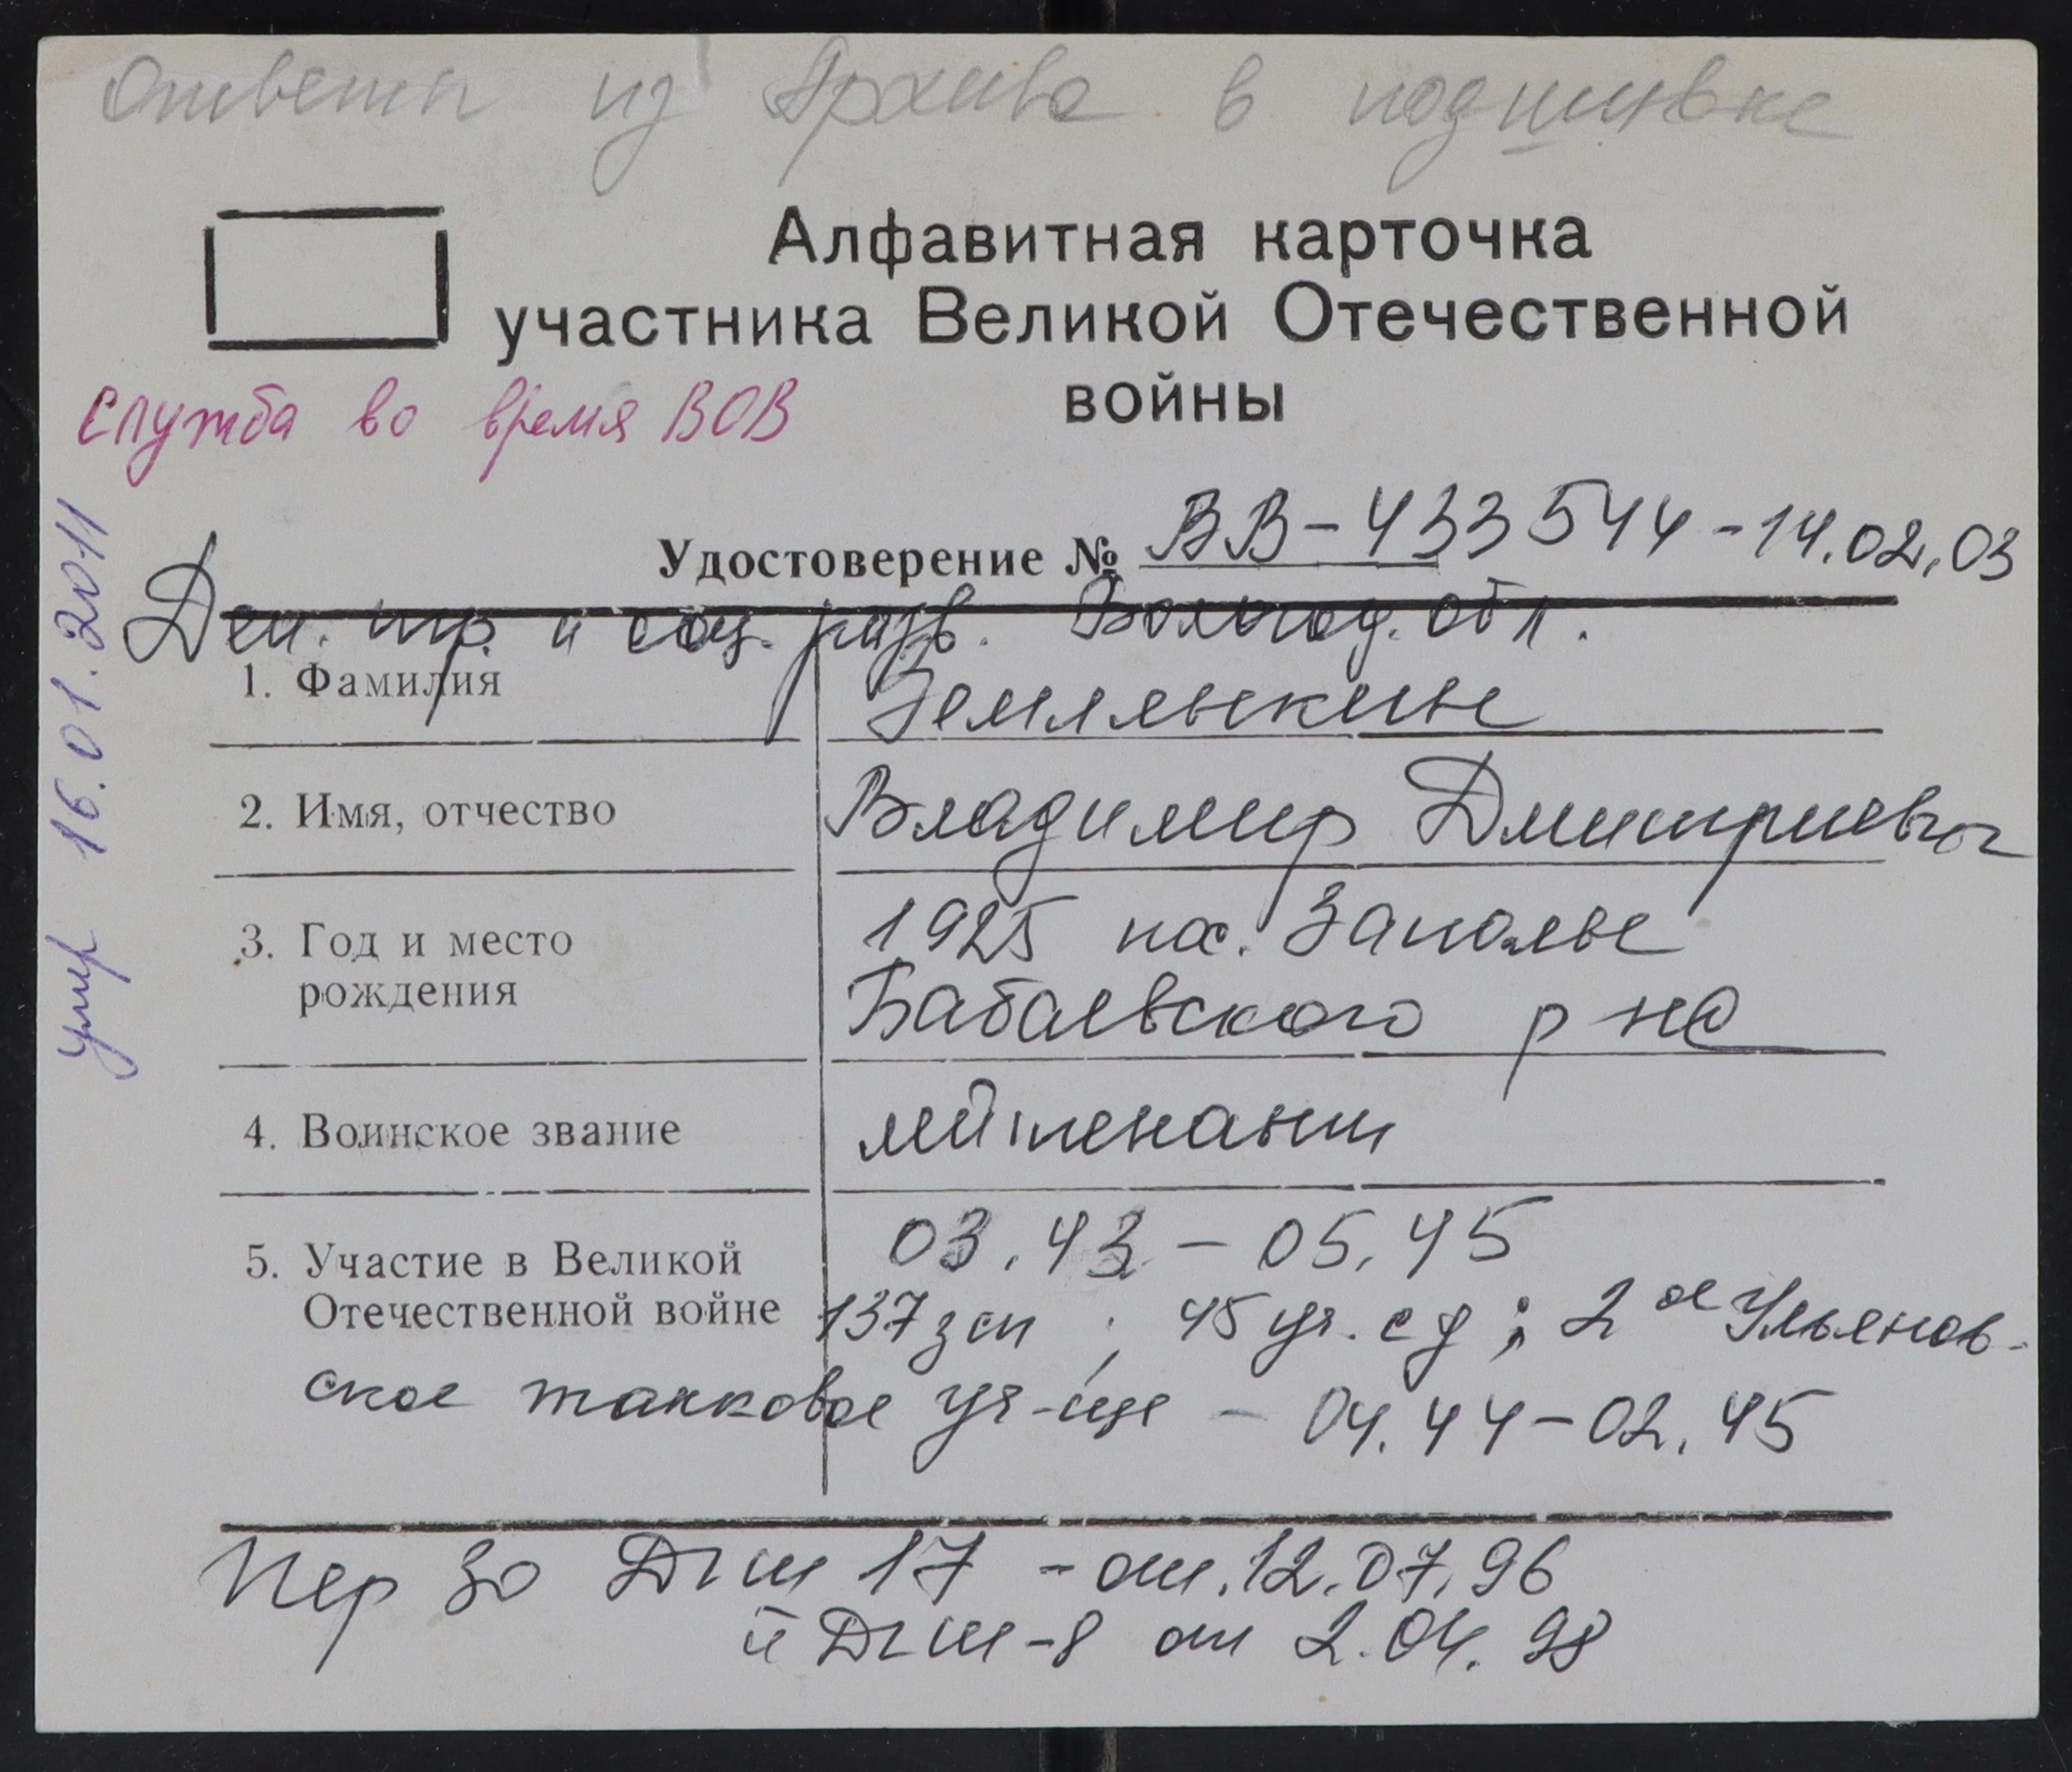 Ответы из Архива в подшивке
Алфавитная карточка
участника Великой Отечественной
войны
Служба во время ВОВ
Удостоверение № ВВ-433544-14.02.03
Деп. тр. и соц. разв. Вологод. обл.
умер 16.01.2011
1. Фамилия
2. Имя, отчество Владимир Дмитриевич
3. Год и место 1925 пос. Заполье
рождения Бабаевского р на
4. Воинское звание лейтенант
5. Участие в Великой 03.43 - 05.45
Отечественной войне 137 зсп ; 45 уч. сд ; 2ое Ульянов-
ское танковое уч-ще - 04.44-02.45
Пер 30 17 - от. 12.07.96
и -8 от 2.04.98